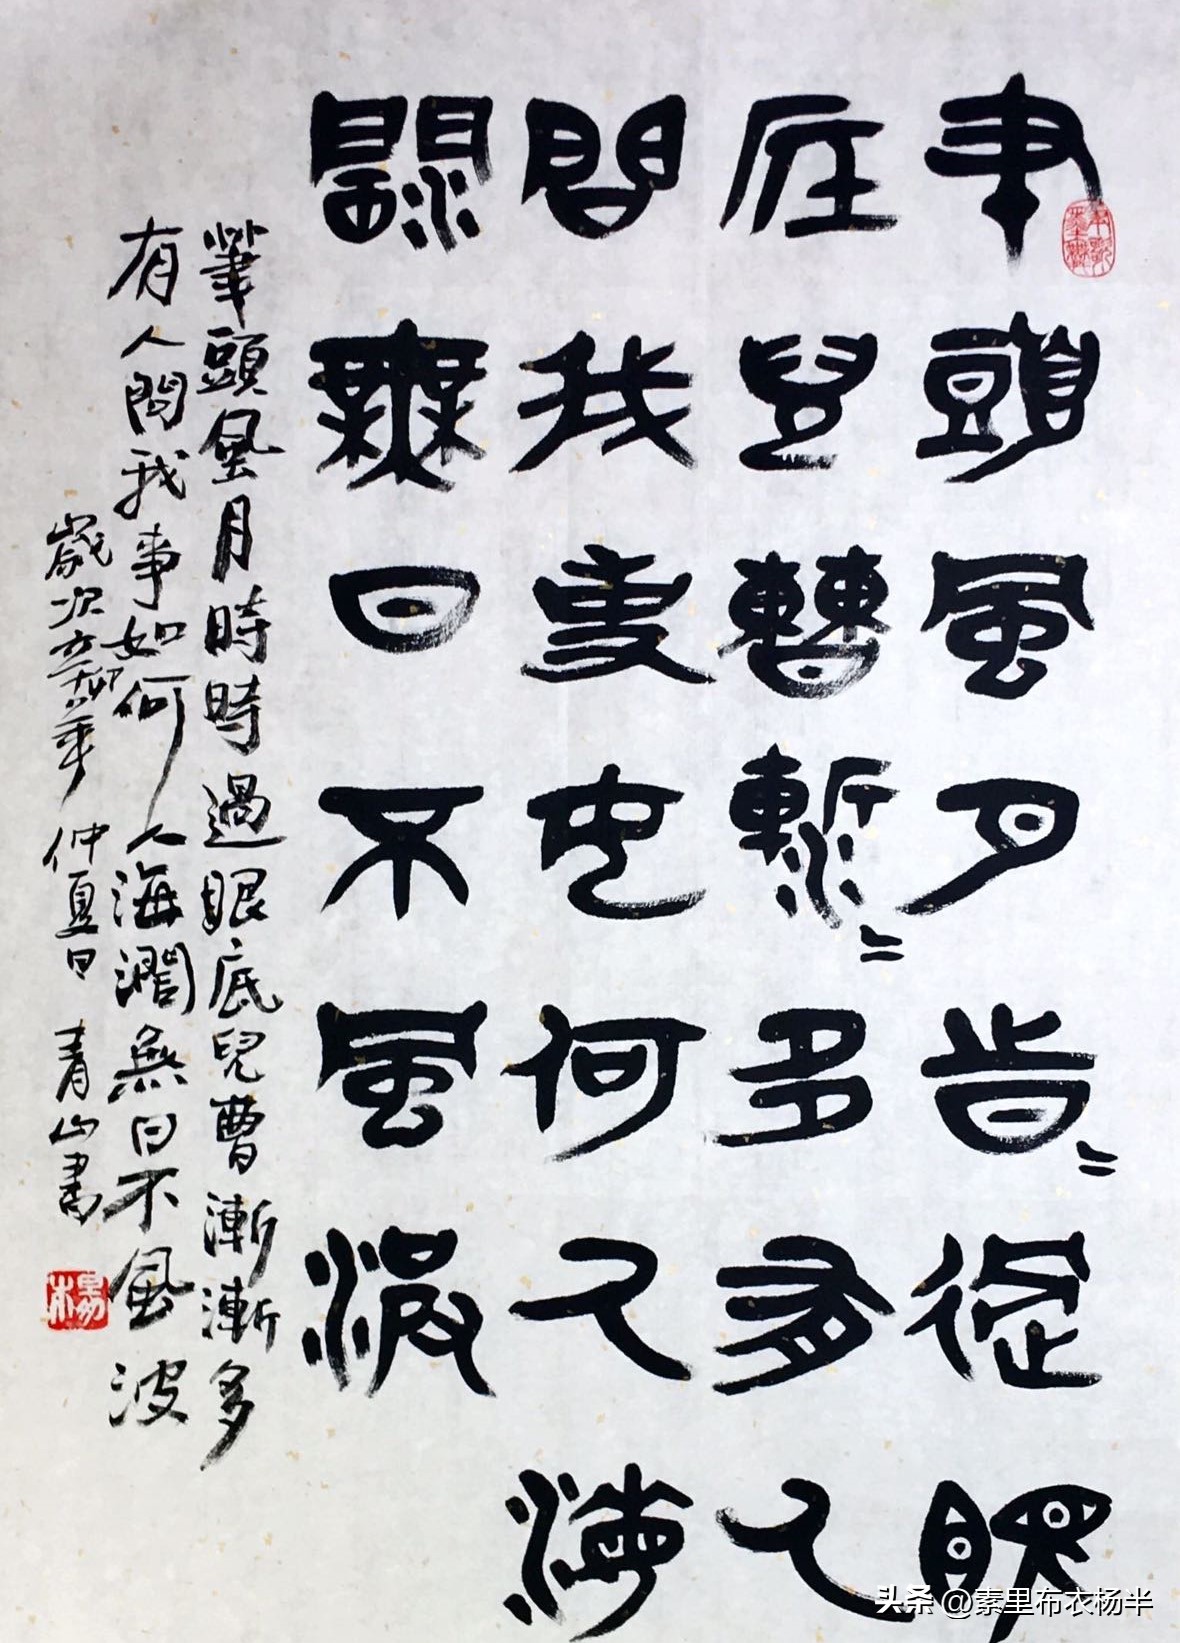 聿頭風月時=過眼
底兒曹漸=多有人
問我事如何人海
闊無日不風波
筆頭風月時時過眼底兒曹漸漸多
有人問我事如何人海濶無日不風波
歲次卯年仲夏日青山書
楊
头条 @素里布衣杨半